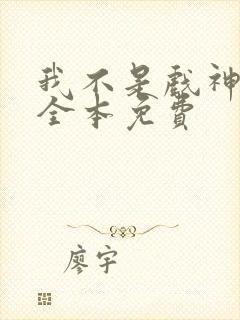 我不是戏神
全本免费
廖宇